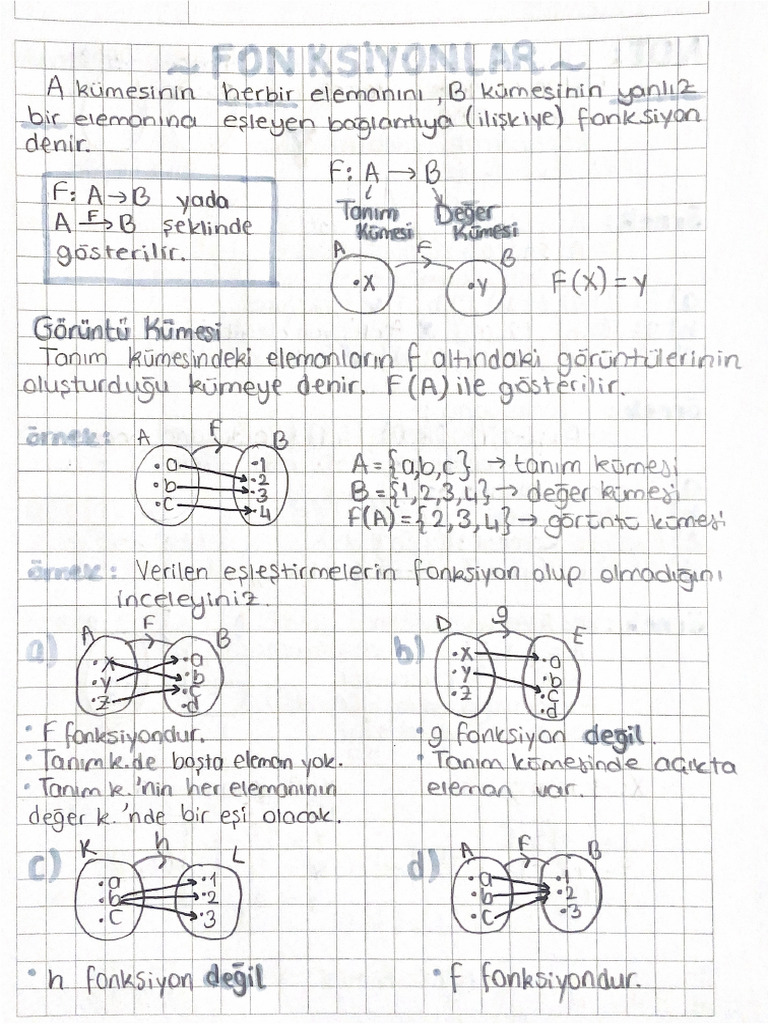 ~ FONKSİYONLAR ~
A kümesinin herbir elemanını, B kümesinin yanlız
bir elemanına eşleyen bağlantıya (ilişkiye) fonksiyon
denir.
F: A → B yada
A F→ B şeklinde
gösterilir.
F: A → B
Tanım Kümesi
Değer Kümesi
A F B
•x •y F(x) = y
Görüntü Kümesi
Tanım kümesindeki elemanların f altındaki görüntülerinin
oluşturduğu kümeye denir. F(A) ile gösterilir.
örnek: A F B
•a •1
•b •2
•c •3
•4
A = {a,b,c} → tanım kümesi
B = {1,2,3,4} → değer kümesi
f(A) = {2,3,4} → görüntü kümesi
örnek: Verilen eşleştirmelerin fonksiyon olup olmadığını
inceleyiniz.
a) A F B
•x •a
•y •b
•z •c
•d
• F fonksiyondur.
• Tanım k. de boşta eleman yok.
• Tanım k.'nin her elemanının
değer k.'nde bir eşi olacak.
b) D g E
•x •a
•y •b
•z •c
•d
• g fonksiyon değil.
• Tanım kümesinde açıkta
eleman var.
c) K h L
•a •1
•b •2
•c •3
• h fonksiyon değil
d) A F B
•a •1
•b •2
•c •3
• f fonksiyondur.